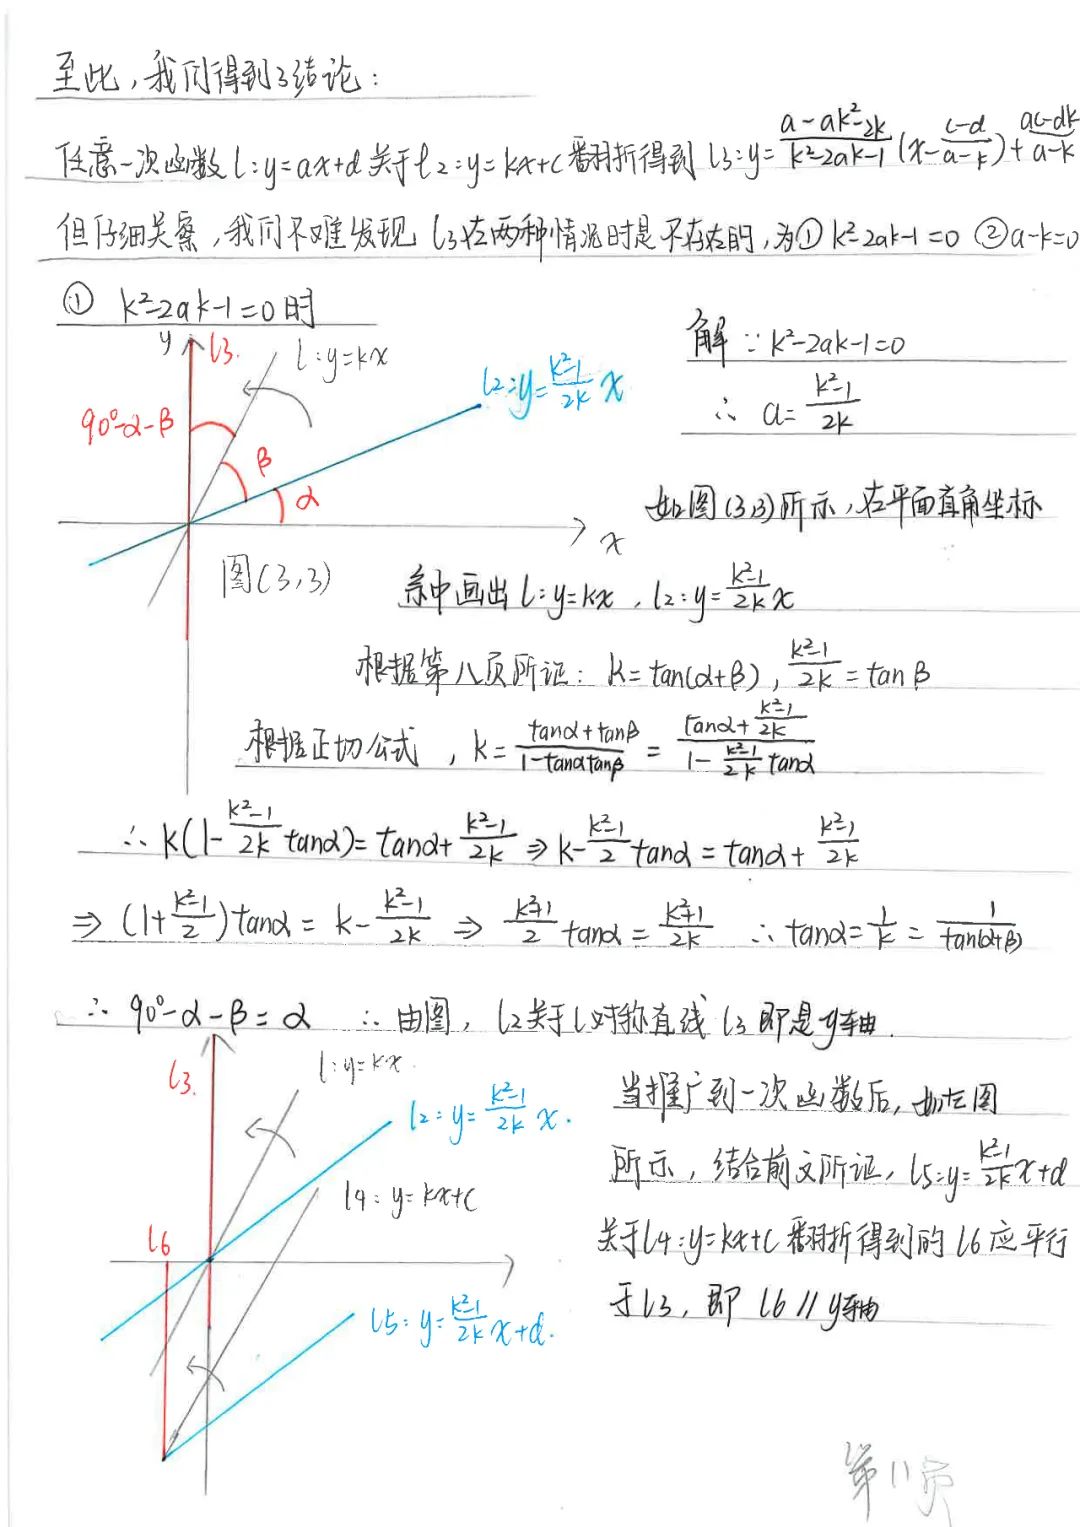 至此,我们得到了结论:
任意一次函数l:y=ax+d关于l2:y=kx+c翻折得到l3:y=\frac{a-ak²-2k}{k²-2ak-1}(x-\frac{c-d}{a-k})+\frac{ac-dk}{a-k}
但仔细关察,我们不难发现l3在两种情况时是不存在的,为①k²-2ak-1=0 ②a-k=0
① k²-2ak-1=0时
y l3. l:y=kx
l2:y=\frac{k²-1}{2k}x
90°-α-β
β
α
x
图(3,3)
解∵k²-2ak-1=0
∴ a=\frac{k²-1}{2k}
如图(3,3)所示,在平面直角坐标
系中画出l:y=kx,l2:y=\frac{k²-1}{2k}x
根据第八页所证:k=tan(α+β),\frac{k²-1}{2k}=tanβ
根据正切公式,k=\frac{tanα+tanβ}{1-tanαtanβ}=\frac{tanα+\frac{k²-1}{2k}}{1-\frac{k²-1}{2k}tanα}
∴k(1-\frac{k²-1}{2k}tanα)=tanα+\frac{k²-1}{2k}⇒k-\frac{k²-1}{2}tanα=tanα+\frac{k²-1}{2k}
⇒(1+\frac{k²-1}{2})tanα=k-\frac{k²-1}{2k}⇒\frac{k²+1}{2}tanα=\frac{k²+1}{2k} ∴tanα=\frac{1}{k}=\frac{1}{tan(α+β)}
∴90°-α-β=α ∴由图,l2关于l对称直线l3即是y轴.
l3.
l:y=kx
l2:y=\frac{k²-1}{2k}x.
l4:y=kx+c
l6
l5:y=\frac{k²-1}{2k}x+d.
当推广到一次函数后,如左图
所示,结合前文所证,l5:y=\frac{k²-1}{2k}x+d
关于l4:y=kx+c翻折得到的l6应平行
于l3,即l6//y轴
第11页